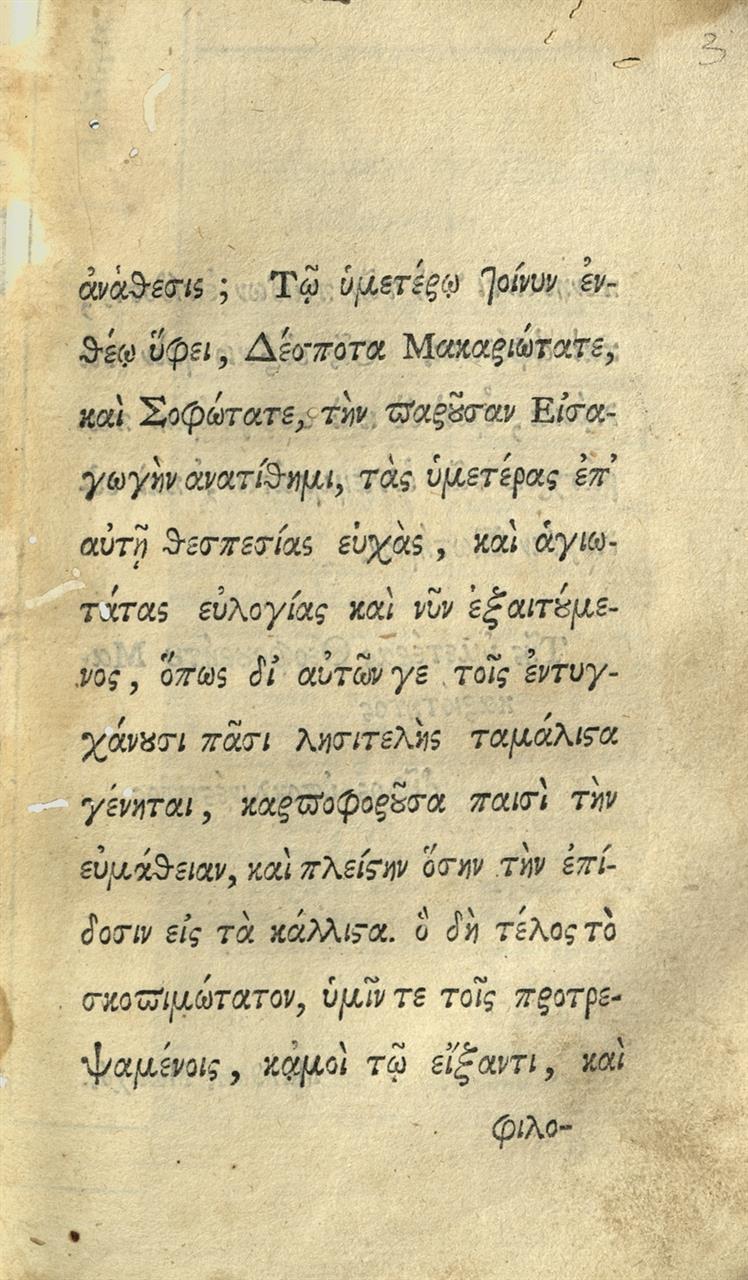 3
ἀνάθεσις ; Τῷ ὑμετέρῳ τοίνυν ἐν-
θέῳ ὕφει , Δέσποτα Μακαριώτατε,
καὶ Σοφώτατε, τὴν ϖαρȣ͂σαν Εἰσα-
γωγὴν ανατίθημι, τὰς ὑμετέρας ἐπ'
αὐτῇ θεσπεσίας εὐχὰς , καὶ ἁγιω-
τάτας εὐλογίας καὶ νῦν ἐξαιτȣ́με-
νος , ὅπως δἰ αὐτῶν γε τοῖς ἐντυγ-
χάνȣσι πᾶσι λησιτελὴς ταμάλιϛα
γένηται , καρϖοφορȣ͂σα παισὶ τὴν
εὐμάθειαν, καὶ πλείϛην ὅσην τὴν ἐπί-
δοσιν εἰς τὰ κάλλιϛα. ὃ δὴ τέλος τὸ
σκοϖιμώτατον, ὑμῖν τε τοῖς προτρε-
ψαμένοις , κᾀμοὶ τῷ εἴξαντι , καὶ
φιλο-